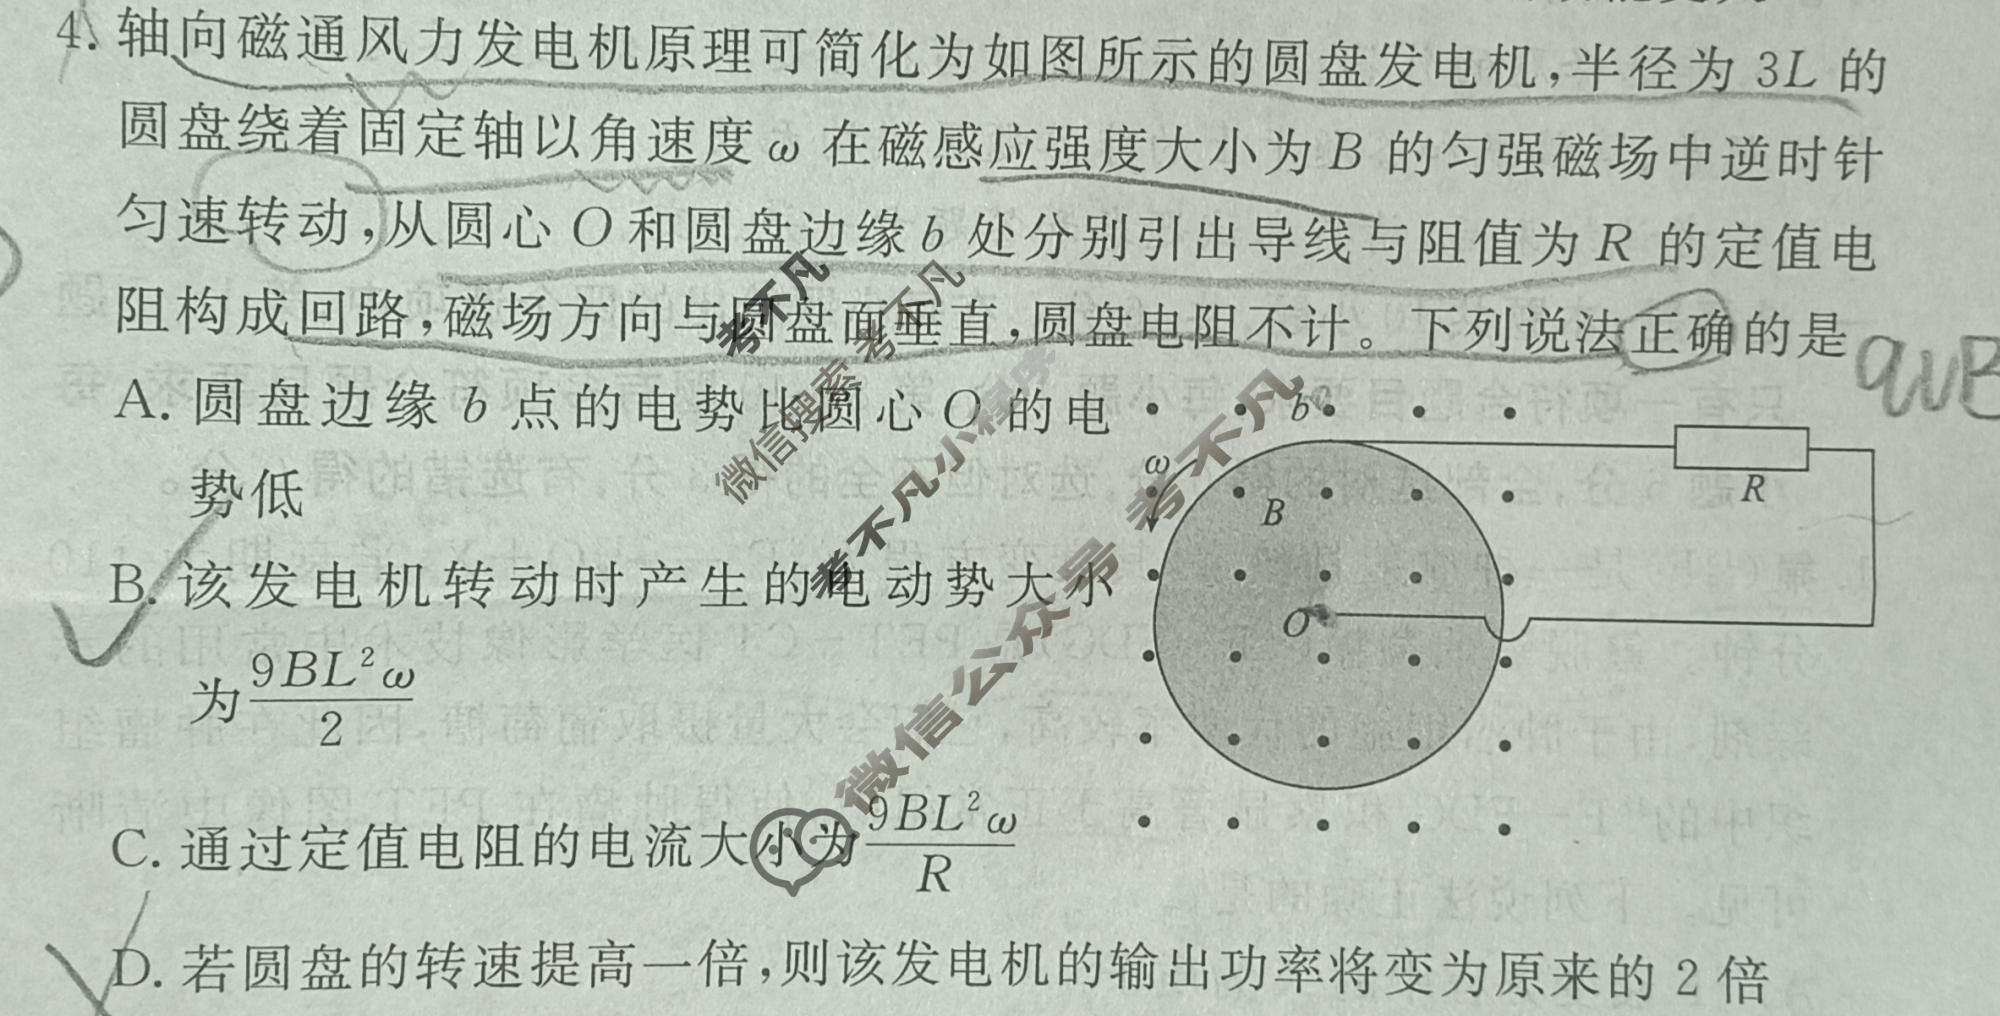 4. 轴向磁通风力发电机原理可简化为如图所示的圆盘发电机,半径为 3L 的
圆盘绕着固定轴以角速度 ω 在磁感应强度大小为 B 的匀强磁场中逆时针
匀速转动,从圆心 O 和圆盘边缘 b 处分别引出导线与阻值为 R 的定值电
阻构成回路,磁场方向与圆盘面垂直,圆盘电阻不计。下列说法正确的是
A. 圆盘边缘 b 点的电势比圆心 O 的电
势低
B. 该发电机转动时产生的电动势大小
为 9BL²ω/2
C. 通过定值电阻的电流大小为 9BL²ω/R
D. 若圆盘的转速提高一倍,则该发电机的输出功率将变为原来的 2 倍
b
ω
B
R
O
考不凡
考不凡
微信搜索
考不凡小程序
考不凡
微信公众号